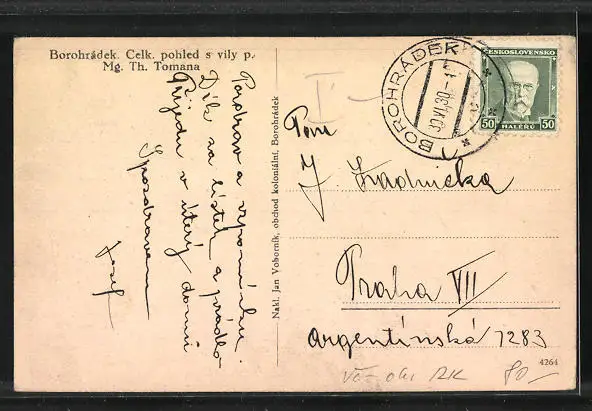 Borohrádek. Celk. pohled s vily p.
Mg. Th. Tomana
Pozdrav a vzpomínku.
Dík za lístek a prádlo
Přijedu v úterý domů
S pozdravem
Josef
Nakl. Jan Voborník, obchod koloniální, Borohrádek
I
BOROHRÁDEK
30.VI.30
ČESKOSLOVENSKO
50 HALÉŘŮ 50
Pan
J. Hradnička
Praha VII
Argentinská 1283
4264
80-